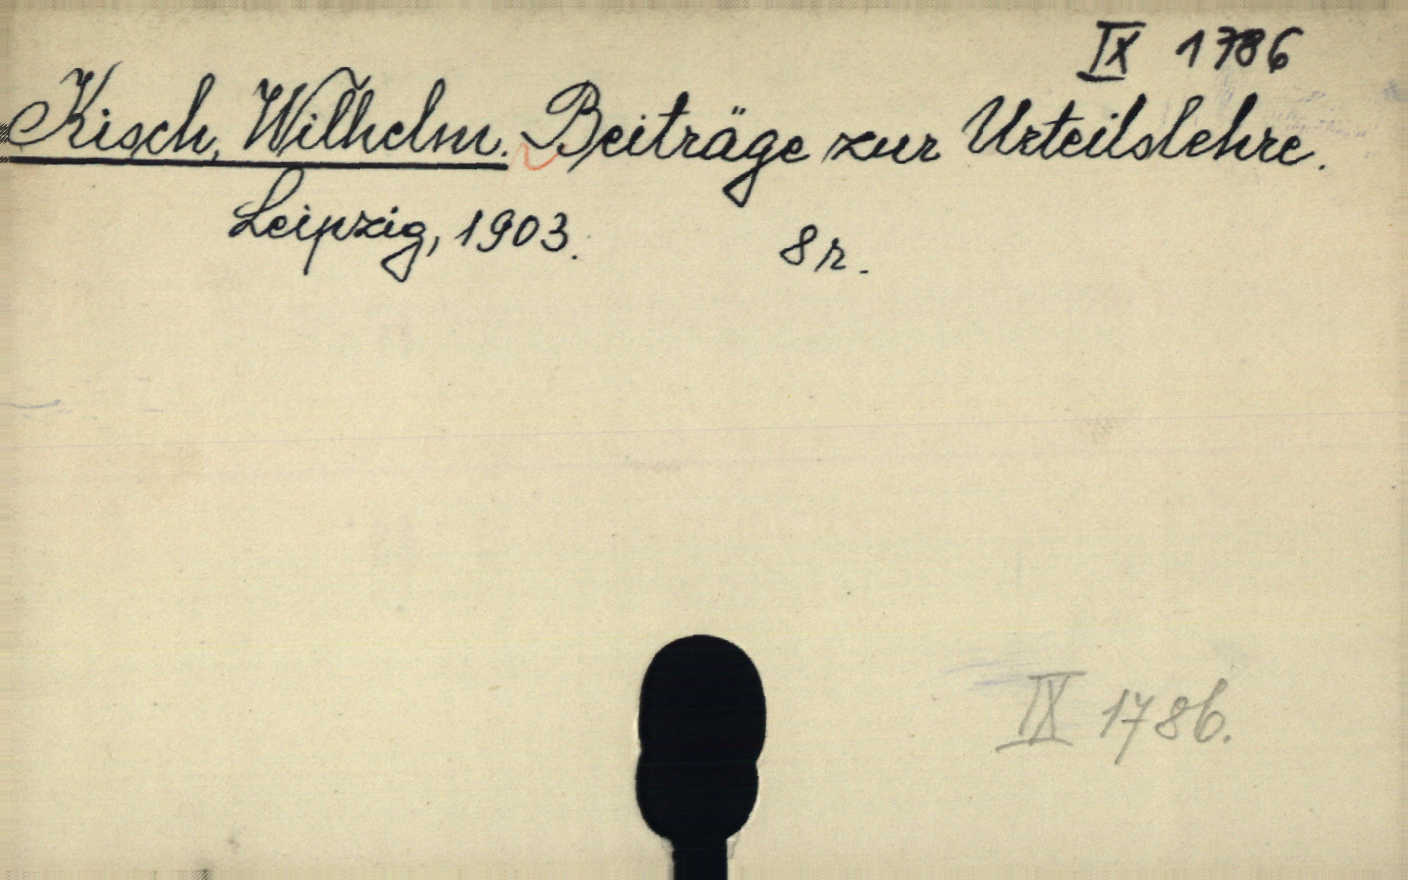 IX 1786
Kisch, Wilhelm. Beiträge zur Urteilslehre.
Leipzig, 1903. 8r.
IX 1786.